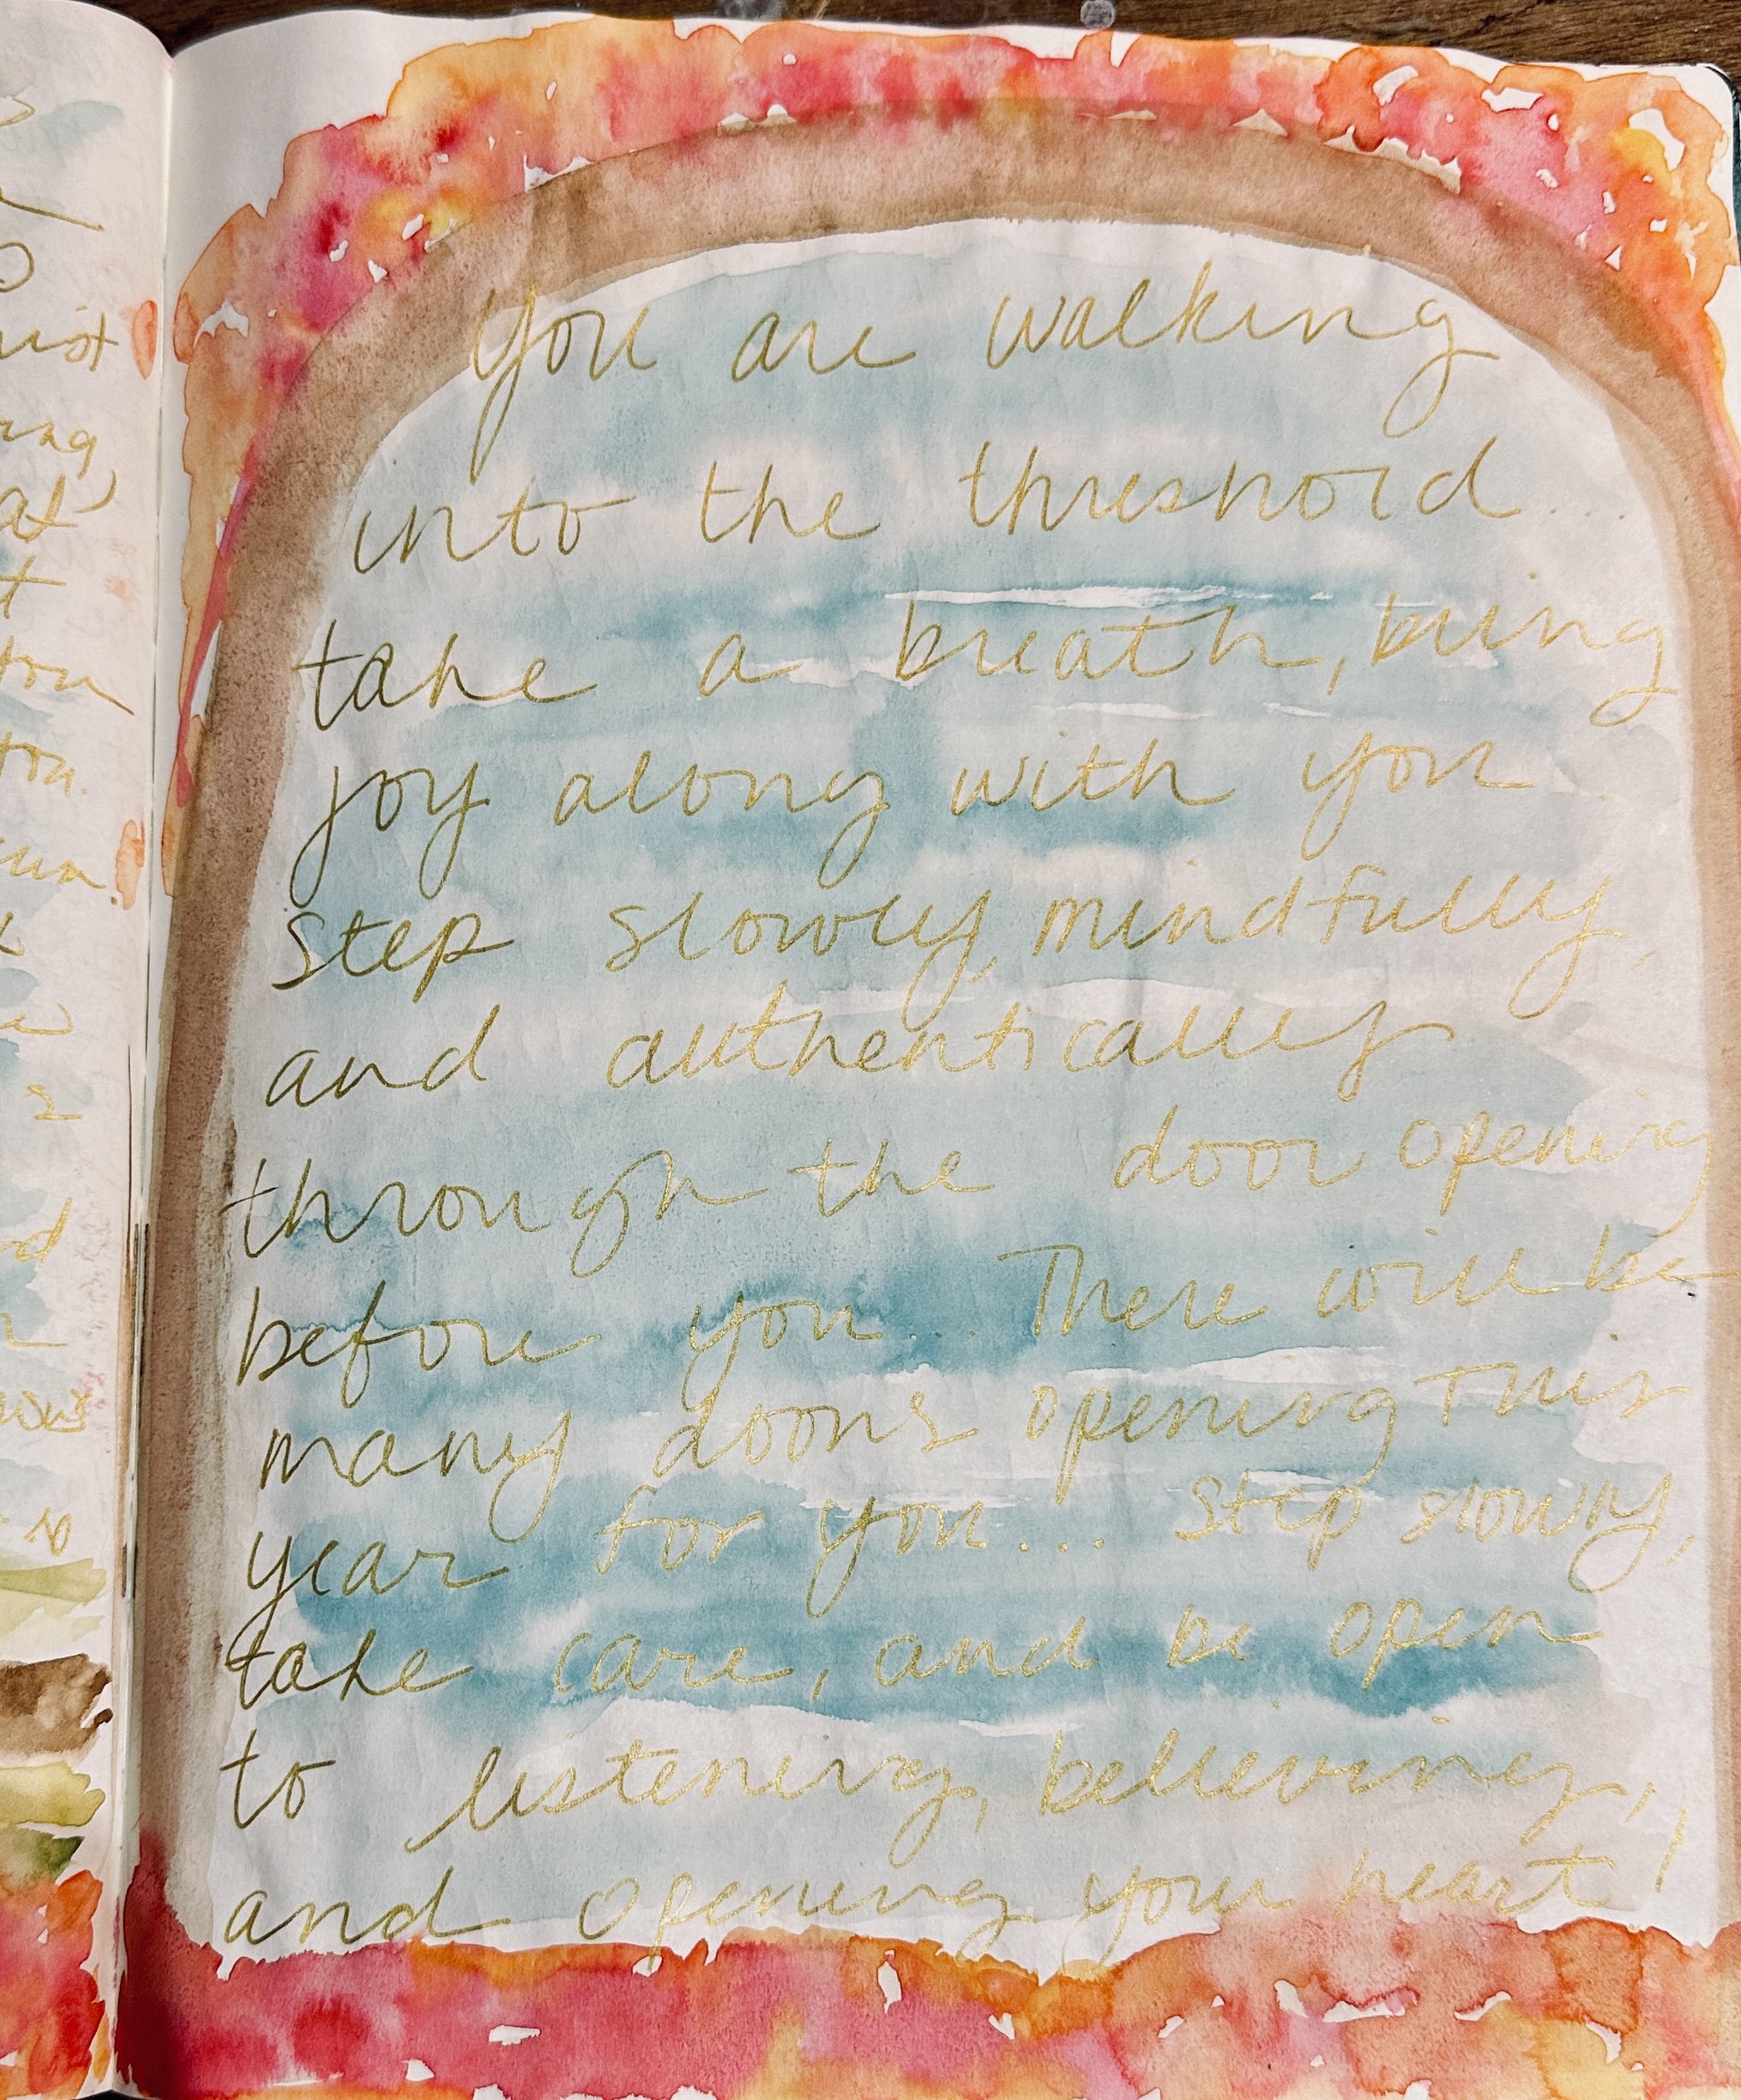 You are walking
into the threshold....
take a breath, bring
joy along with you
step slowly, mindfully,
and authentically
through the door opening
before you.... There will be
many doors opening This
year for you.... Step slowly,
take care, and be open
to listening, believing,
and opening your heart!